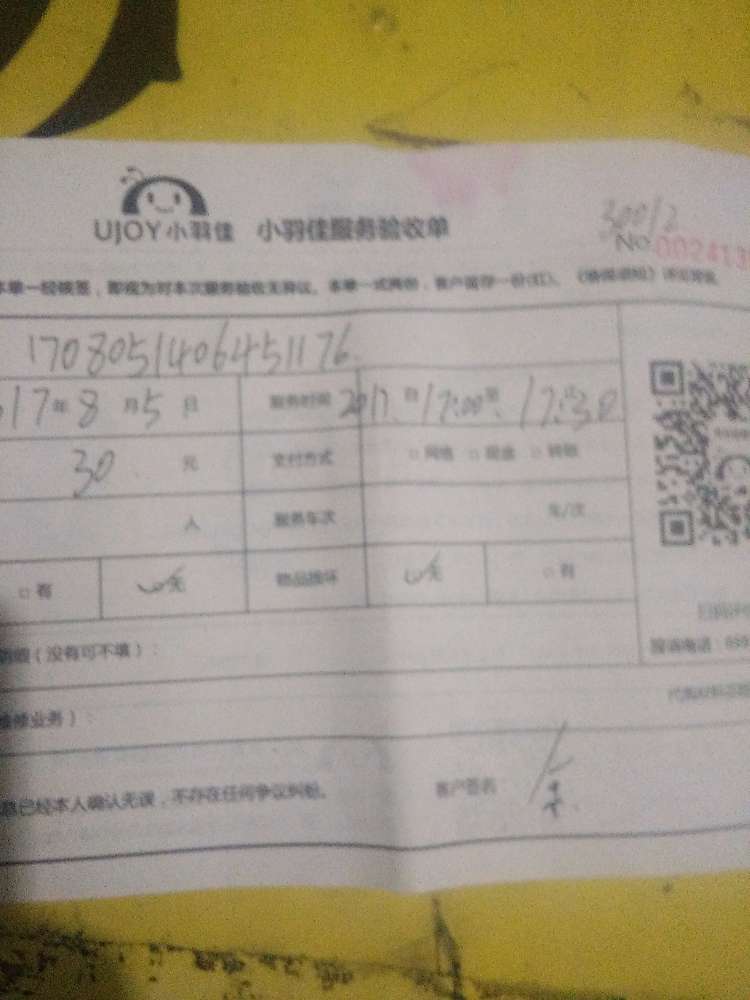 UJOY小羽佳 小羽佳服务验收单
30012
No.002413
本单一经核签，即视为对本次服务验收无异议。本单一式两份，客户留存一份(红)。
17080514064451176
17年8月5日 服务时间 2017. 17:00 17:30
30 元 支付方式 □网络 □现金 □转账
人 服务车次 车/次
□有 无 物品损坏 无 □有
明细（没有可不填）：
维修业务）：
息已经本人确认无误，不存在任何争议纠纷。 客户签名